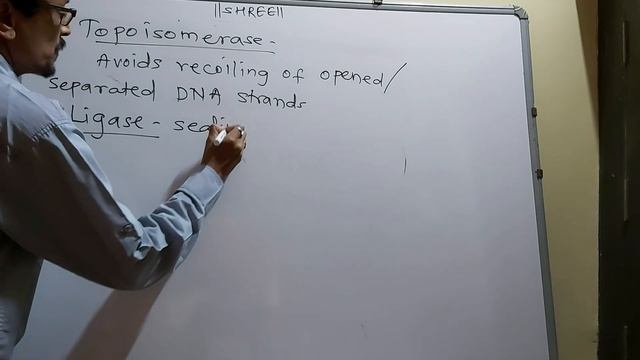 ||SHREE||
Topoisomerase -
Avoids recoiling of opened/
Separated DNA strands
Ligase -